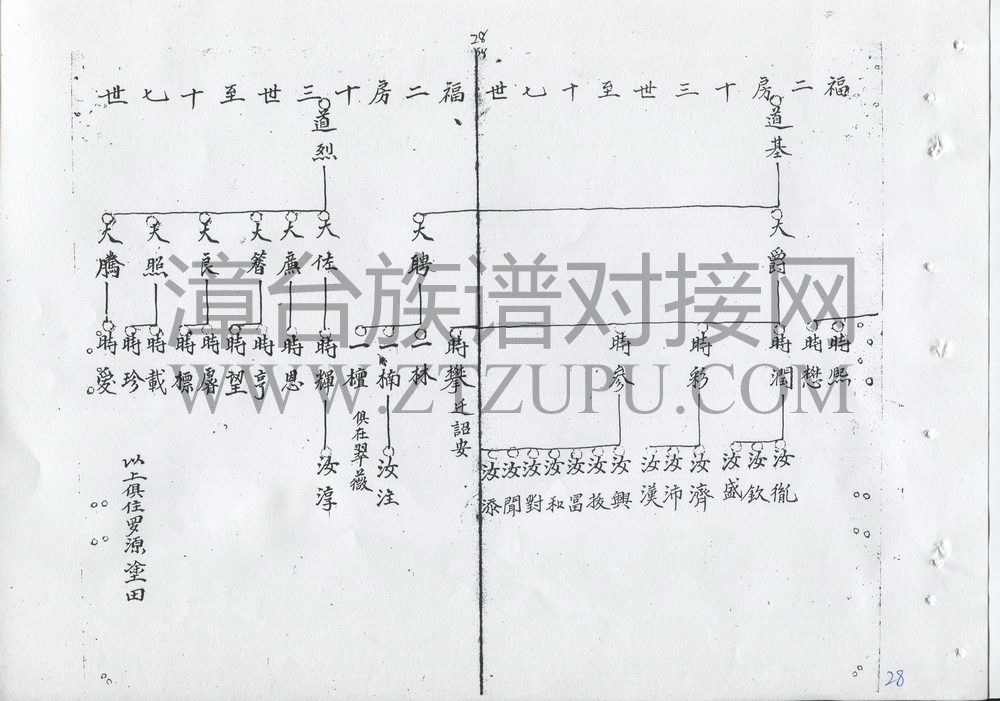 28
福二房十三世至十七世
道基
大爵
時熙
時懋
時潤
時彩
時參
時攀
迁詔安
汝胤
汝欽
汝盛
汝濟
汝沛
汝漢
汝興
汝㧞
汝富
汝和
汝對
汝聞
汝添
福二房十三世至十七世
道烈
大聘
大佐
大廉
大簪
大良
大照
大騰
二林
二楠
二檀
俱在翠薇
時輝
時思
時亨
時望
時標
時載
時珍
時愛
汝注
汝淳
以上俱住罗源塗田
漳台族谱对接网
WWW.ZTZUPU.COM
28